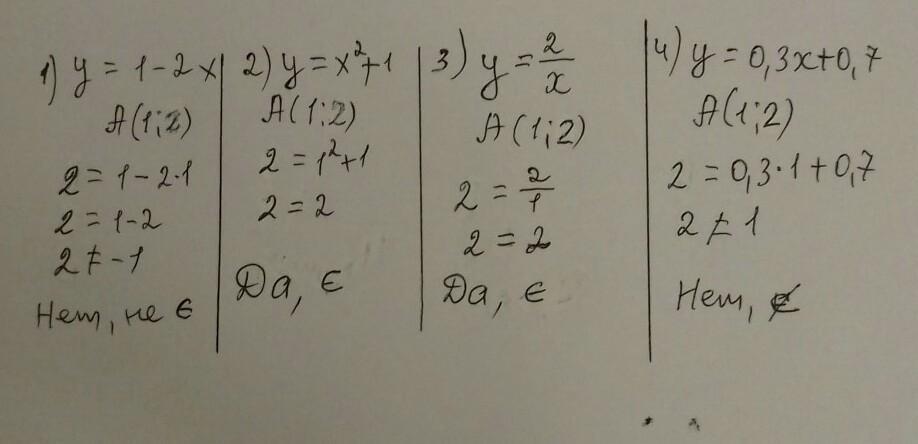 1) y = 1 - 2x
A(1;2)
2 = 1 - 2·1
2 = 1-2
2 ≠ -1
Нет, не ∈
2) y = x²+1
A(1;2)
2 = 1²+1
2 = 2
Да, ∈
3) y = 2/x
A(1;2)
2 = 2/1
2 = 2
Да, ∈
4) y = 0,3x+0,7
A(1;2)
2 = 0,3·1+0,7
2 ≠ 1
Нет, ∉